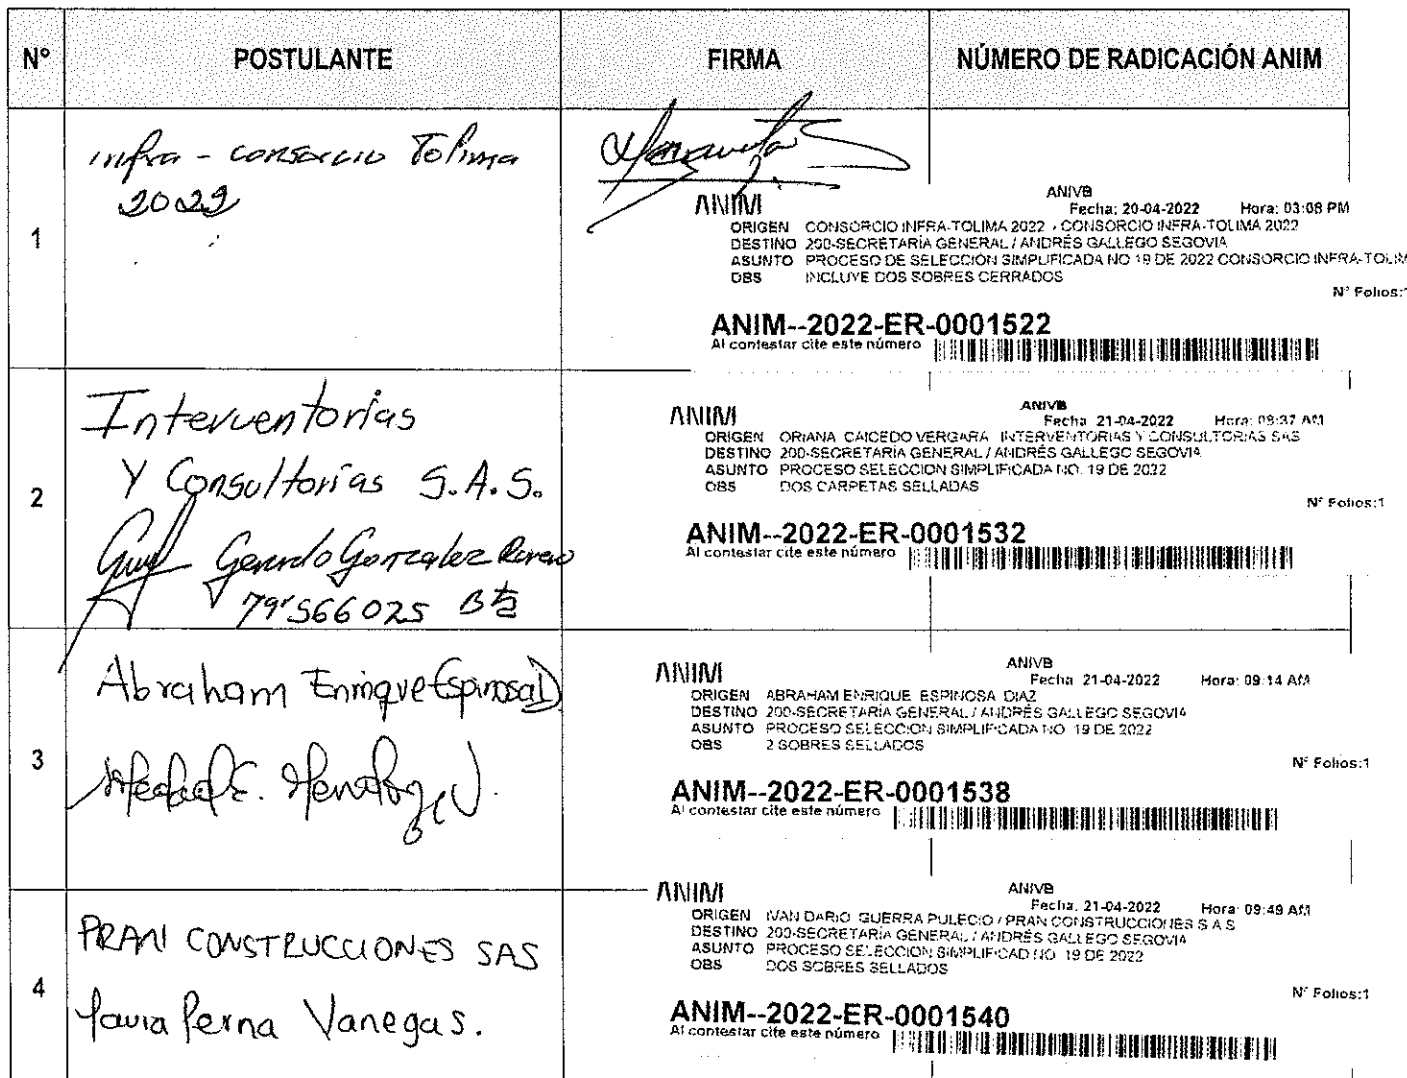 N° POSTULANTE FIRMA NÚMERO DE RADICACIÓN ANIM
1
infra - consorcio Tolima
2022
ANIM
ANIVB
Fecha: 20-04-2022 Hora: 03:08 PM
ORIGEN CONSORCIO INFRA-TOLIMA 2022 - CONSORCIO INFRA-TOLIMA 2022
DESTINO 200-SECRETARÍA GENERAL / ANDRÉS GALLEGO SEGOVIA
ASUNTO PROCESO DE SELECCIÓN SIMPLIFICADA NO 19 DE 2022 CONSORCIO INFRA-TOLIM
OBS INCLUYE DOS SOBRES CERRADOS
N° Folios:1
ANIM--2022-ER-0001522
Al contestar cite este número
2
Interventorias
Y Consultorias S.A.S.
Gerardo Gonzalez
79'566025 Bta
ANIM
ANIVB
Fecha 21-04-2022 Hora: 08:37 AM
ORIGEN ORIANA CAICEDO VERGARA INTERVENTORIAS Y CONSULTORIAS SAS
DESTINO 200-SECRETARÍA GENERAL / ANDRÉS GALLEGO SEGOVIA
ASUNTO PROCESO SELECCION SIMPLIFICADA NO. 19 DE 2022
OBS DOS CARPETAS SELLADAS
N° Folios:1
ANIM--2022-ER-0001532
Al contestar cite este número
3
Abraham Enrique Espinosa D
ANIM
ANIVB
Fecha 21-04-2022 Hora: 09:14 AM
ORIGEN ABRAHAM ENRIQUE ESPINOSA DIAZ
DESTINO 200-SECRETARÍA GENERAL / ANDRÉS GALLEGO SEGOVIA
ASUNTO PROCESO SELECCION SIMPLIFICADA NO 19 DE 2022
OBS 2 SOBRES SELLADOS
N° Folios:1
ANIM--2022-ER-0001538
Al contestar cite este número
4
PRAN CONSTRUCCIONES SAS
Perna Vanegas.
ANIM
ANIVB
Fecha. 21-04-2022 Hora: 09:49 AM
ORIGEN IVAN DARIO GUERRA PULECIO / PRAN CONSTRUCCIONES S A S
DESTINO 200-SECRETARÍA GENERAL / ANDRÉS GALLEGO SEGOVIA
ASUNTO PROCESO SELECCION SIMPLIFICAD NO 19 DE 2022
OBS DOS SOBRES SELLADOS
N° Folios:1
ANIM--2022-ER-0001540
Al contestar cite este número